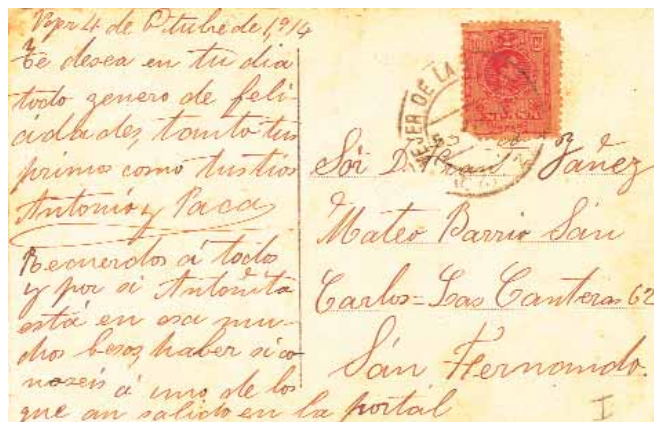 4 de Otubre de 1914
Te desea en tu dia
todo genero de feli-
cidades, tanto tus
primos como tus tios
Antonio y Paca
Recuerdos á todos
y por si Antoñita
está en esa mu-
chos besos, haber si co
nozeis á uno de los
que an salido en la portal
VEJER DE LA
Sór D. Juan Yáñez
Mateo Barrio Sán
Carlos=Las Canteras 62
Sán Fernando.
I